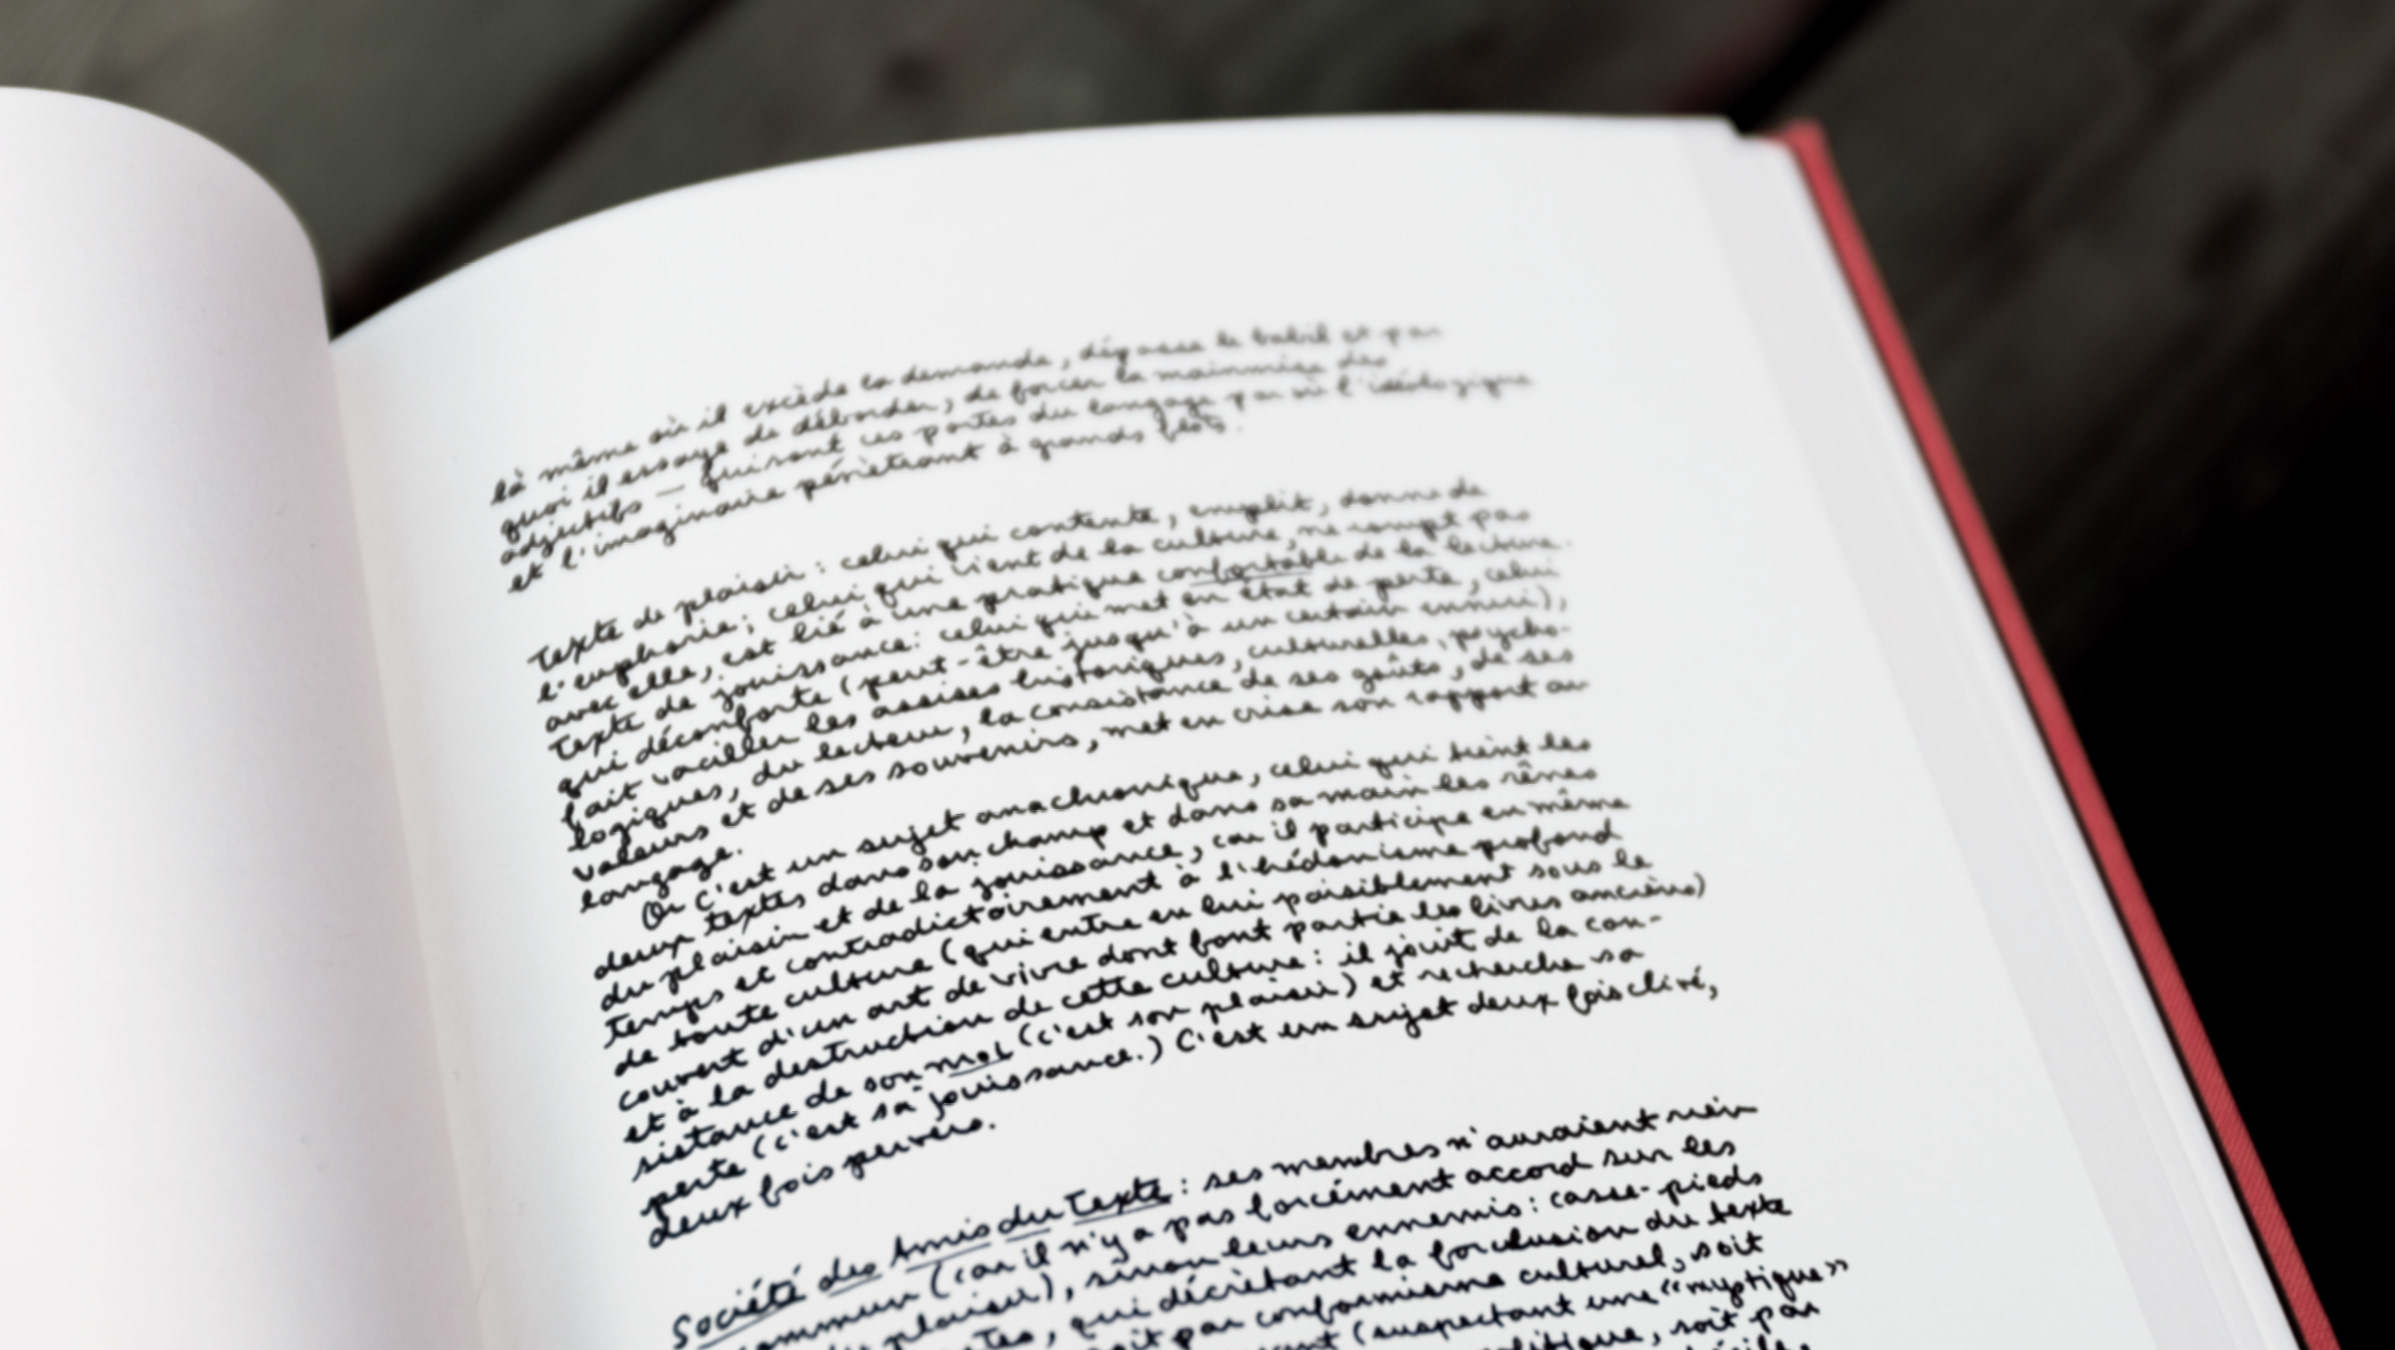 là même où il excède la demande, dépasse le babil et par
quoi il essaye de déborder, de forcer la mainmise des
adjectifs — qui sont ces portes du langage par où l'idéologique
et l'imaginaire pénètrent à grands flots.
Texte de plaisir : celui qui contente, emplit, donne de
l'euphorie; celui qui vient de la culture, ne rompt pas
avec elle, est lié à une pratique confortable de la lecture.
Texte de jouissance: celui qui met en état de perte, celui
qui déconforte (peut-être jusqu'à un certain ennui),
fait vaciller les assises historiques, culturelles, psycho-
logiques, du lecteur, la consistance de ses goûts, de ses
valeurs et de ses souvenirs, met en crise son rapport au
langage.
Or c'est un sujet anachronique, celui qui tient les
deux textes dans son champ et dans sa main les rênes
du plaisir et de la jouissance, car il participe en même
temps et contradictoirement à l'hédonisme profond
de toute culture (qui entre en lui paisiblement sous le
couvert d'un art de vivre dont font partie les livres anciens)
et à la destruction de cette culture: il jouit de la con-
sistance de son moi (c'est son plaisir) et recherche sa
perte (c'est sa jouissance.) C'est un sujet deux fois clivé,
deux fois pervers.
Société des Amis du Texte: ses membres n'auraient rien
commun (car il n'y a pas forcément accord sur les
du plaisir), sinon leurs ennemis: casse-pieds
qui décrètent la forclusion du texte
soit par conformisme culturel, soit
(suspectant une "mystique"
soit par